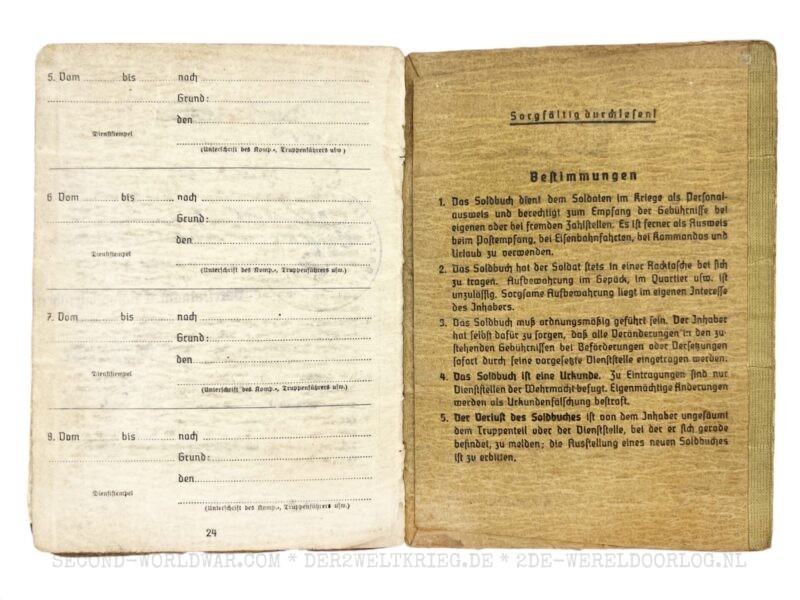 5. Vom ............ bis ............ nach ............
Grund: ............
den ............
Dienststempel
(Unterschrift des Komp.-, Truppenführers usw.)
6 Vom ............ bis ............ nach ............
Grund: ............
den ............
Dienststempel
(Unterschrift des Komp.-, Truppenführers usw.)
7. Vom ............ bis ............ nach ............
Grund: ............
den ............
Dienststempel
(Unterschrift des Komp.-, Truppenführers usw.)
8. Vom ............ bis ............ nach ............
Grund: ............
den ............
Dienststempel
(Unterschrift des Komp.-, Truppenführers usw.)
24
Sorgfältig durchlesen!
Bestimmungen
1. Das Soldbuch dient dem Soldaten im Kriege als Personal-
ausweis und berechtigt zum Empfang der Gebührnisse bei
eigenen oder bei fremden Zahlstellen. Es ist ferner als Ausweis
beim Postempfang, bei Eisenbahnfahrten, bei Kommandos und
Urlaub zu verwenden.
2. Das Soldbuch hat der Soldat stets in einer Rocktasche bei sich
zu tragen. Aufbewahrung im Gepäck, im Quartier usw. ist
unzulässig. Sorgsame Aufbewahrung liegt im eigenen Interesse
des Inhabers.
3. Das Soldbuch muß ordnungsmäßig geführt sein. Der Inhaber
hat selbst dafür zu sorgen, daß alle Veränderungen in den zu-
stehenden Gebührnissen bei Beförderungen oder Versetzungen
sofort durch seine vorgesetzte Dienststelle eingetragen werden.
4. Das Soldbuch ist eine Urkunde. Zu Eintragungen sind nur
Dienststellen der Wehrmacht befugt. Eigenmächtige Änderungen
werden als Urkundenfälschung bestraft.
5. Der Verlust des Soldbuches ist von dem Inhaber ungesäumt
dem Truppenteil oder der Dienststelle, bei der er sich gerade
befindet, zu melden; die Ausstellung eines neuen Soldbuches
ist zu erbitten.
SECOND-WORLDWAR.COM * DER2WELTKRIEG.DE * 2DE-WERELDOORLOG.NL